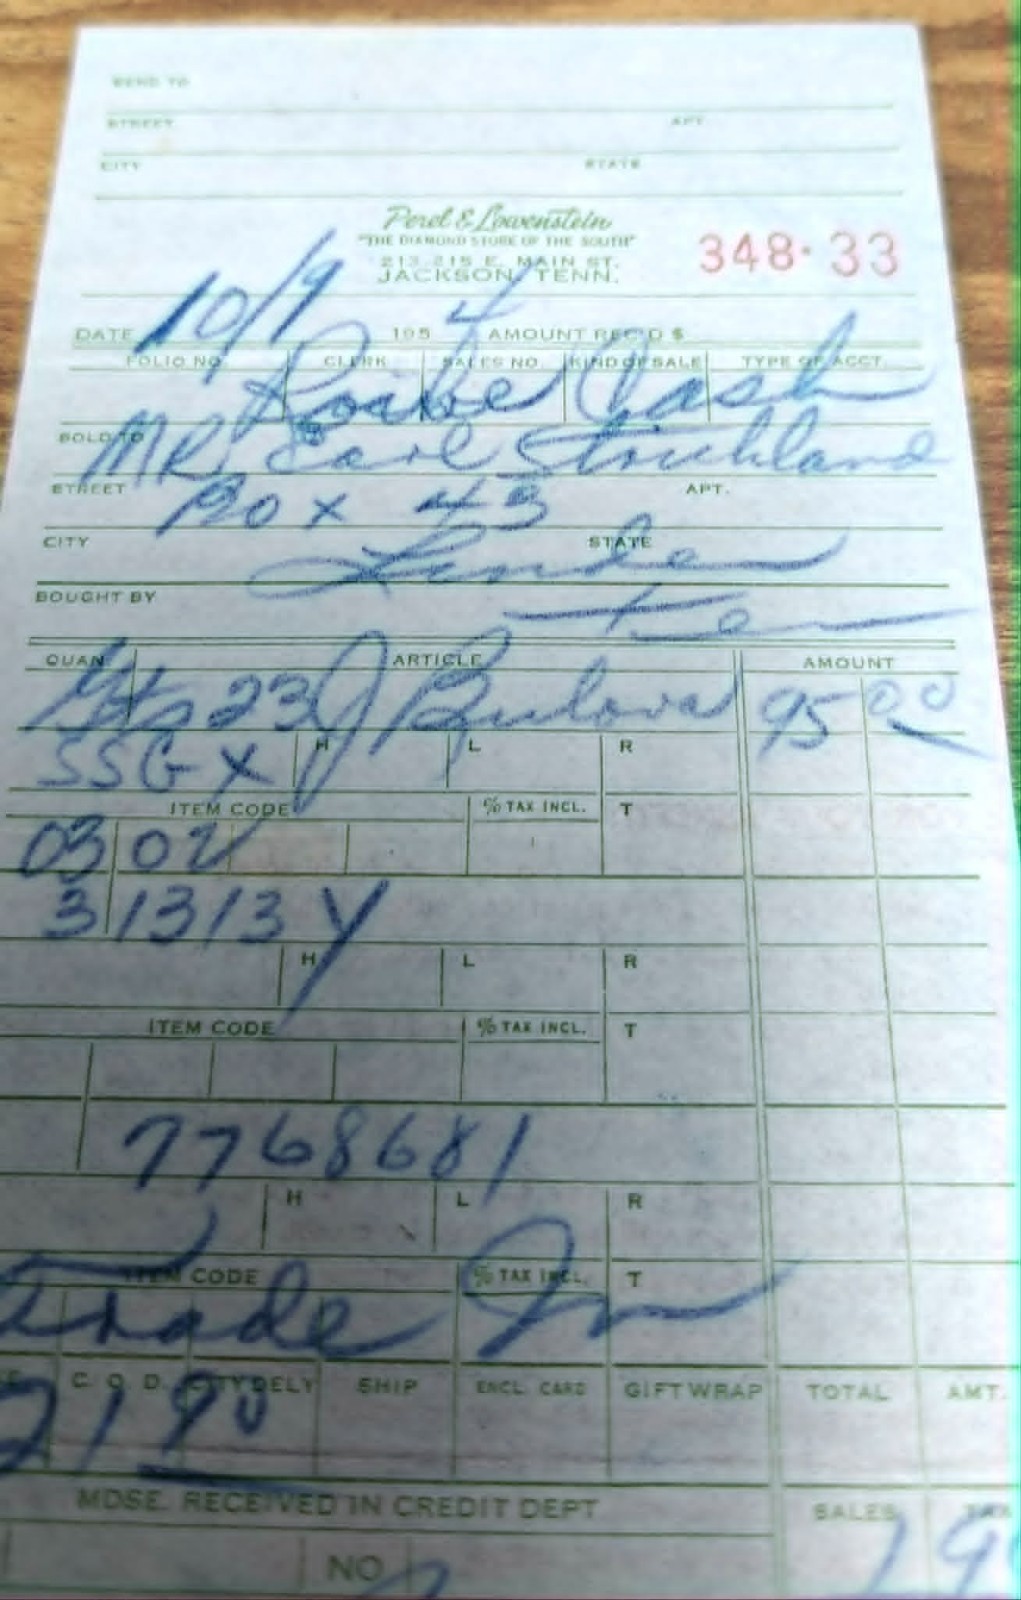 SEND TO
STREET APT.
CITY STATE
Perel & Lowenstein
"THE DIAMOND STORE OF THE SOUTH"
213-215 E. MAIN ST.
JACKSON, TENN.
348-33
DATE 10/9 195 4 AMOUNT REC'D $
FOLIO NO. CLERK SALES NO. KIND OF SALE TYPE OF ACCT.
Cash
SOLD TO MR. Earl Strickland
STREET Box 43 APT.
CITY Linden STATE
BOUGHT BY Ten
QUAN. ARTICLE AMOUNT
Gts 23J Bulova 95 00
SSG X H L R
ITEM CODE % TAX INCL. T
0302
31313 Y
H L R
ITEM CODE % TAX INCL. T
7768681
H L R
ITEM CODE % TAX INCL. T
Trade In
C. O. D. CITY DELY SHIP ENCL. CARD GIFT WRAP TOTAL AMT.
21
MDSE. RECEIVED IN CREDIT DEPT SALES TAX
NO